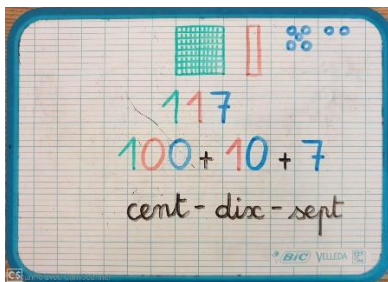 117
100 + 10 + 7
cent - dix - sept
BIC VELLEDA
CS